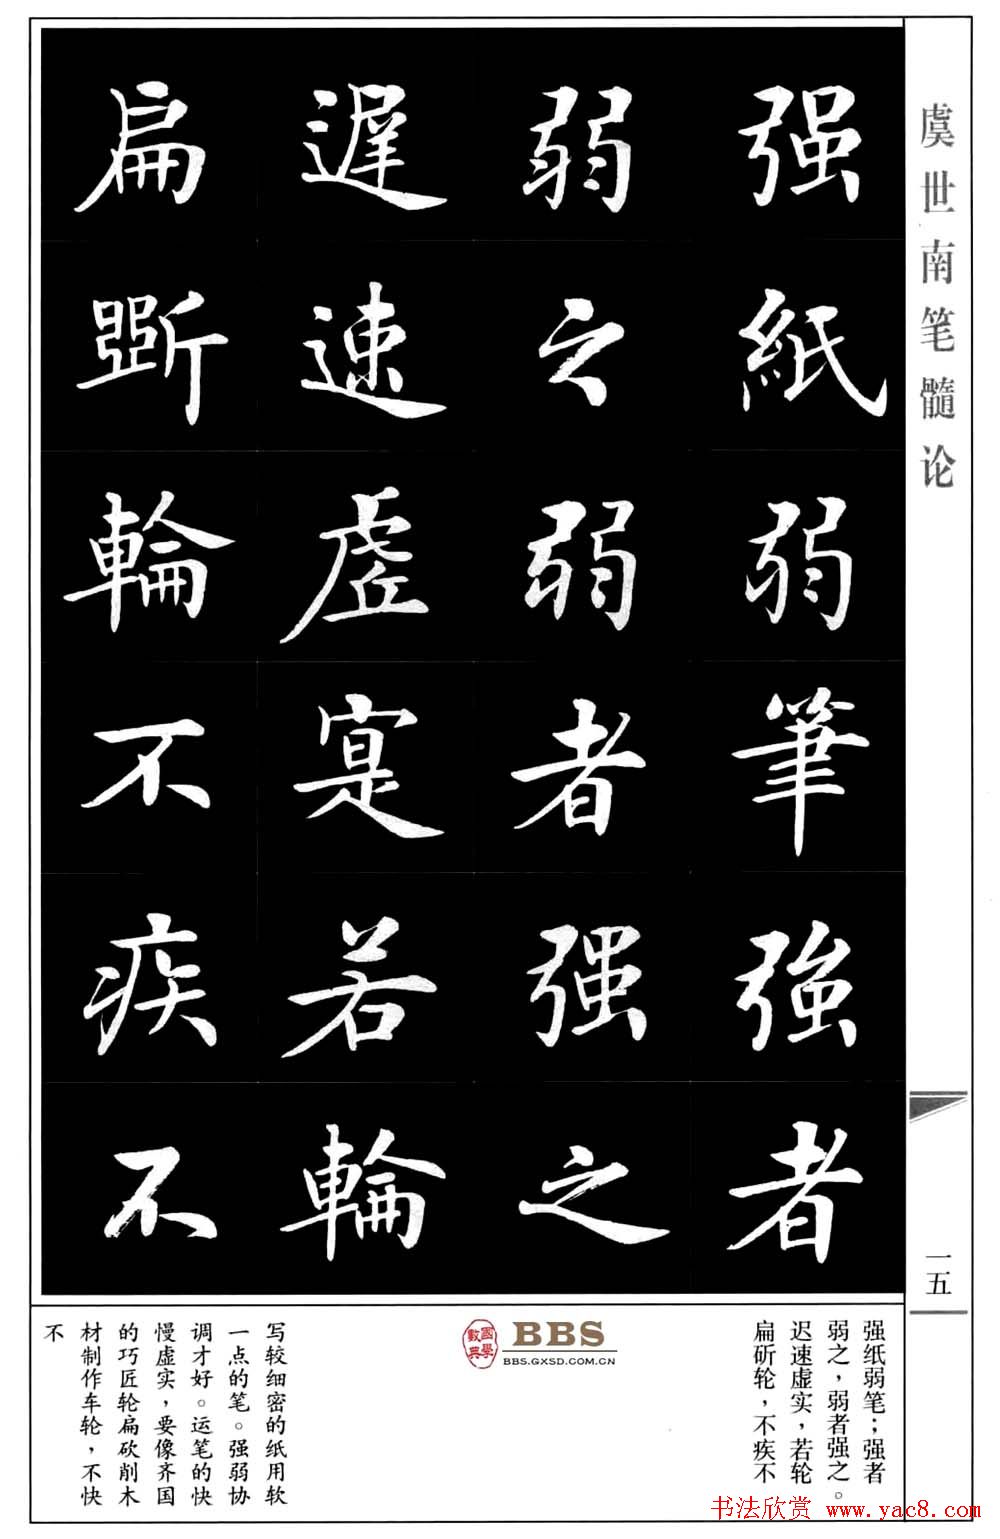 虞世南笔髓论
强紙弱筆強者
弱之弱者强之
遟速虚寔若輪
扁斲輪不疾不
一五
强纸弱笔；强者
弱之，弱者强之。
迟速虚实，若轮
扁斫轮，不疾不
國學
數典
BBS
BBS.GXSD.COM.CN
写较细密的纸用软
一点的笔。强弱协
调才好。运笔的快
慢虚实，要像齐国
的巧匠轮扁砍削木
材制作车轮，不快
不
书法欣赏 www.yac8.com